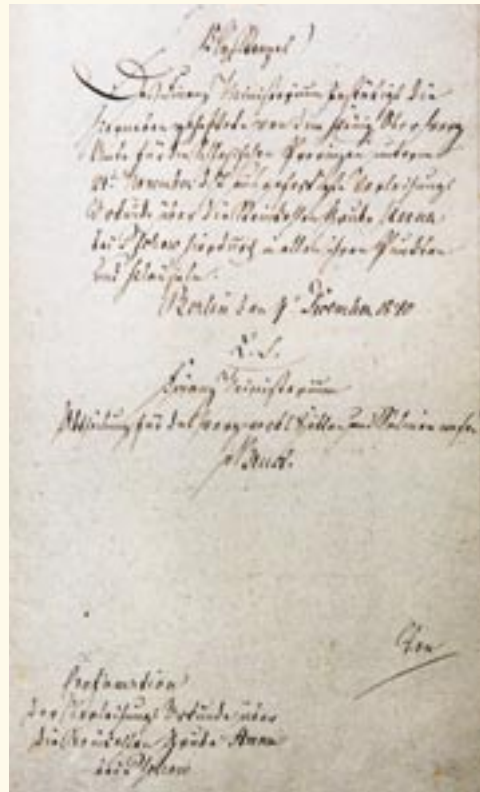 Das Finanz Ministerium bestätigt die
hierneben geheftete von dem Königl. Ober Berg
Amte für die Schlesischen Provinzen unterm
November ausgefertigte Verleihungs
Urkunde über die Steinkohlen Grube Anna
bei Pschow hierdurch in allen ihren Punkten
und Klauseln.
Berlin den Dezember 1840
L. S.
Finanz Ministerium
Abtheilung für das Berg- Hütten und Salinen wesen
Confirmation
der Verleihungs Urkunde über
die Steinkohlen Grube Anna
bei Pschow